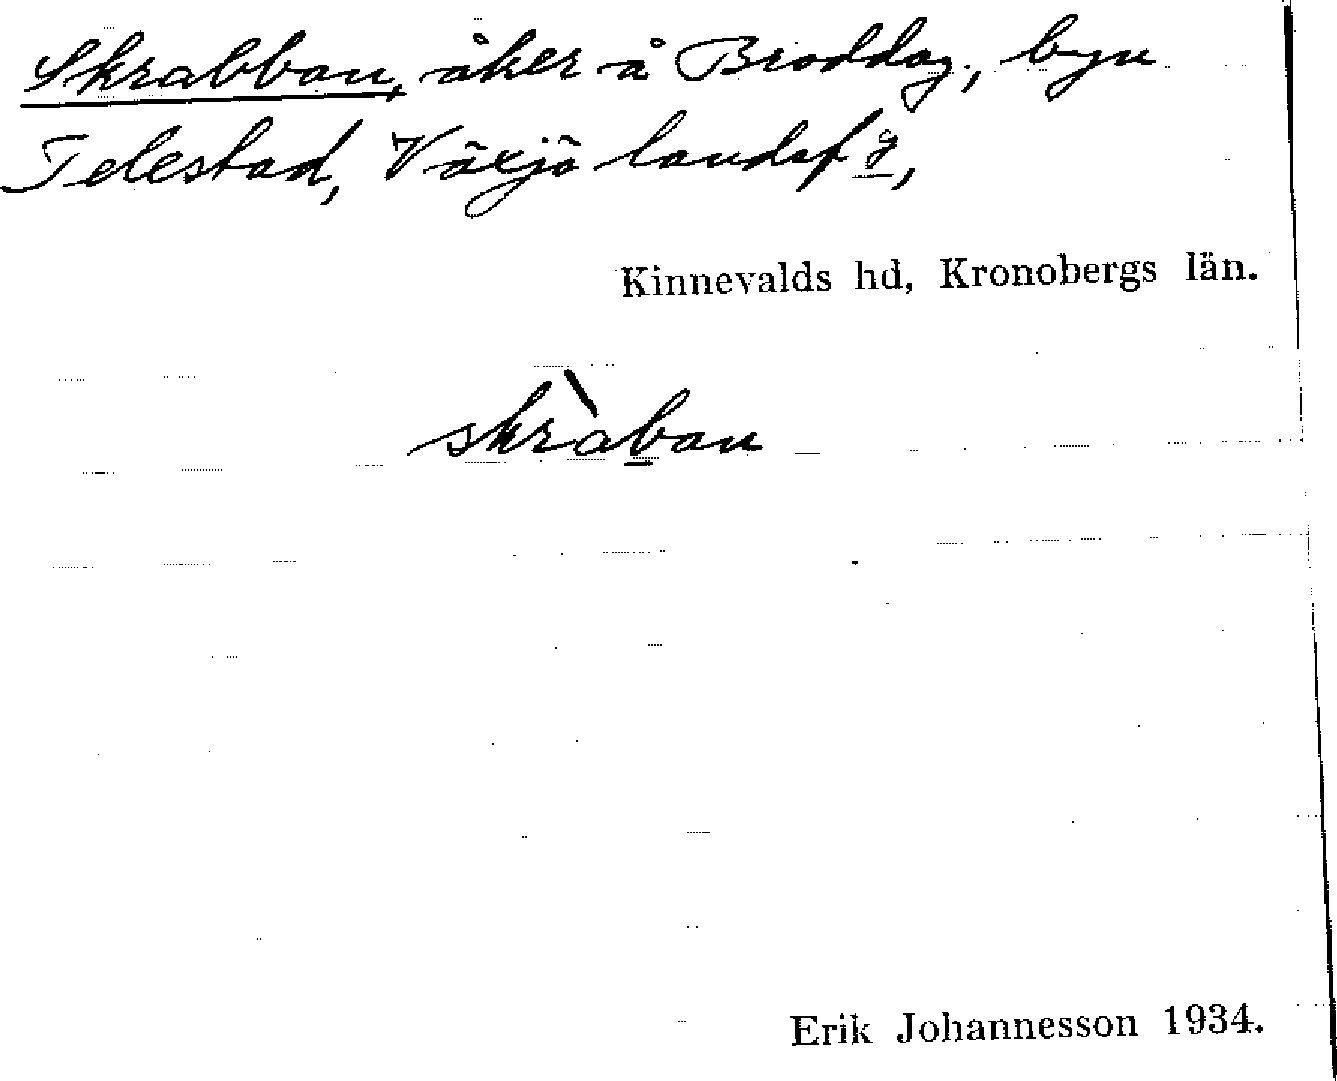 Skrabban, åker å Broddag., byn
Telestad, Växjö landsfg,
Kinnevalds hd, Kronobergs län.
skràban
Erik Johannesson 1934.